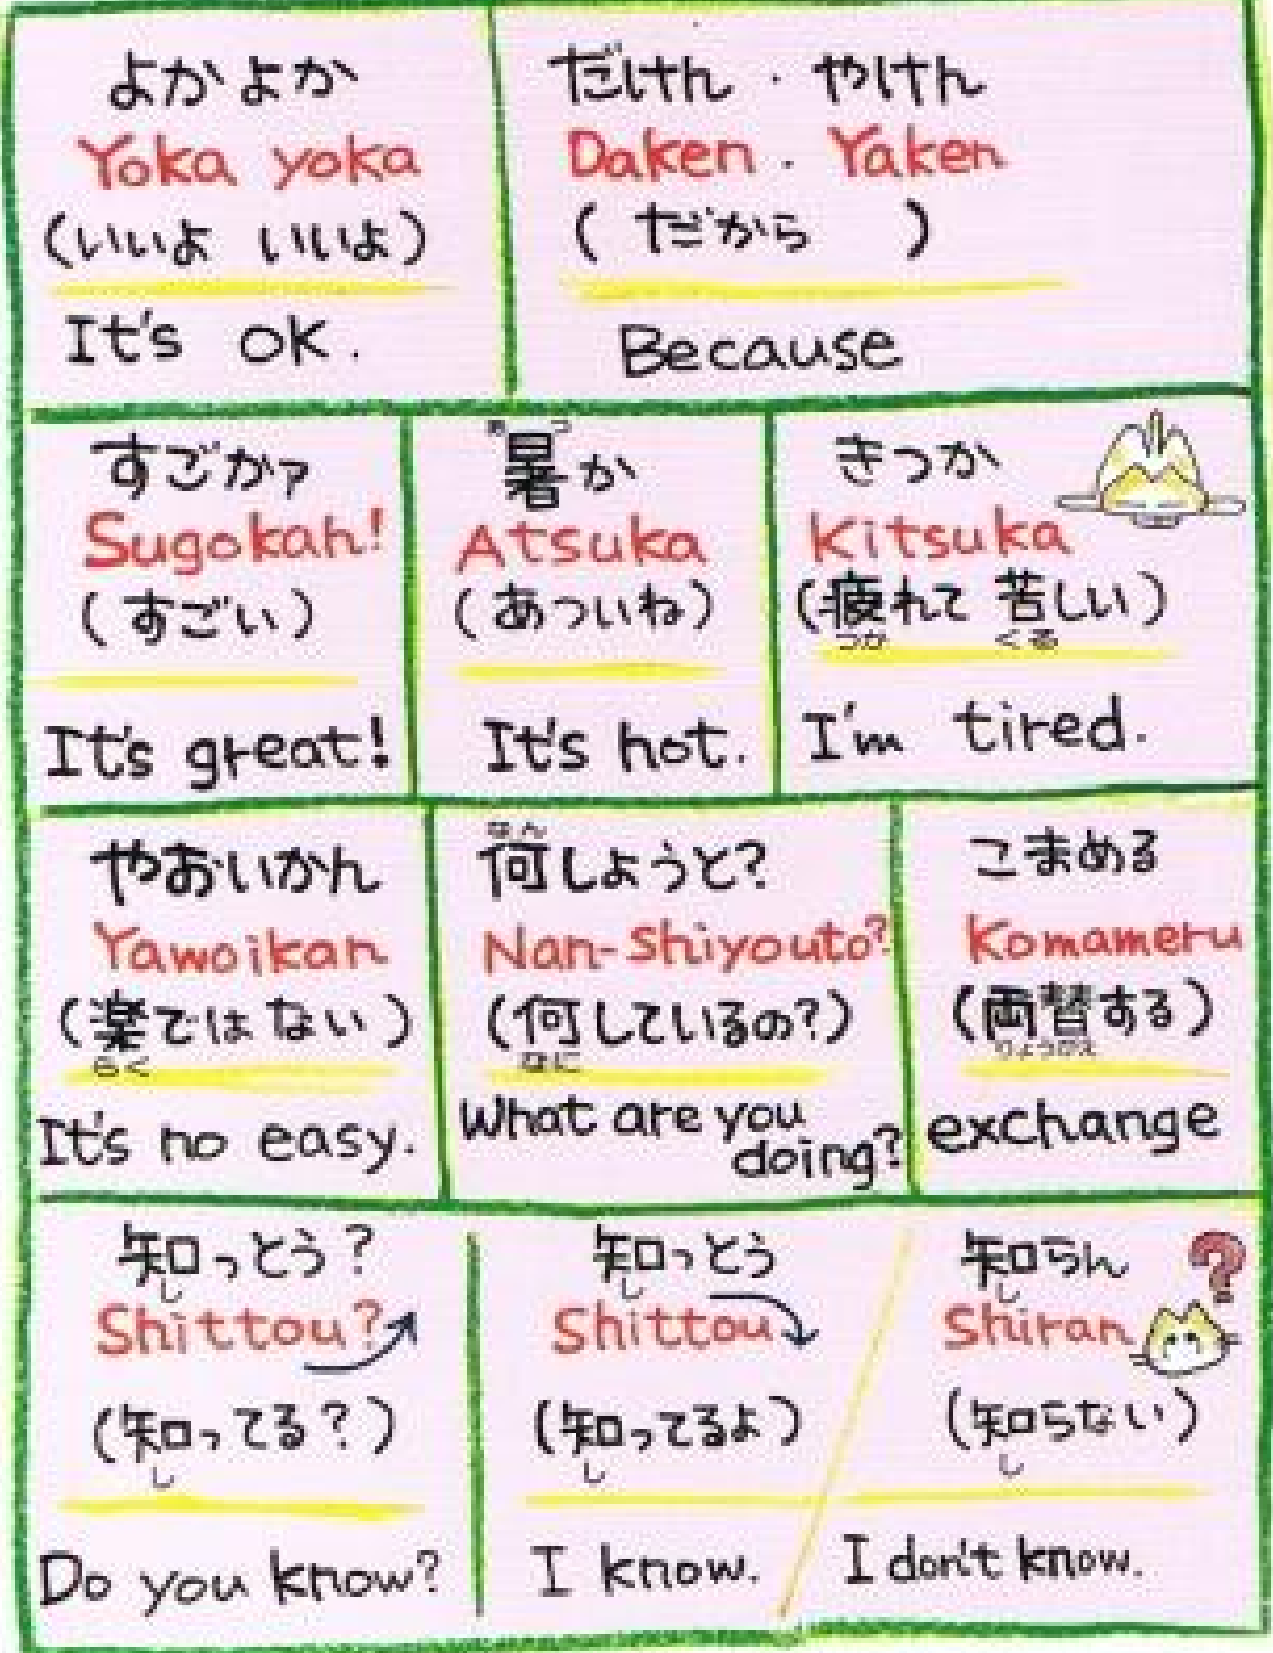 よかよか
Yoka yoka
(いいよ いいよ)
It's OK.
だけん・やけん
Daken . Yaken
( だから )
Because
すごかァ
Sugokah!
(すごい)
It's great!
あつ
暑か
Atsuka
(あついね)
It's hot.
きつか
Kitsuka
(疲れて 苦しい)
つか くる
I'm tired.
やおいかん
Yawoikan
(楽ではない)
らく
It's no easy.
なん
何しようと?
Nan-Shiyouto?
(何しているの?)
なに
What are you
doing?
こまめる
Komameru
(両替する)
りょうがえ
exchange
知っとう?
し
Shittou?
(知ってる?)
し
Do you know?
知っとう
し
Shittou
(知ってるよ)
し
I know.
知らん
し
?
Shiran
(知らない)
し
I don't know.